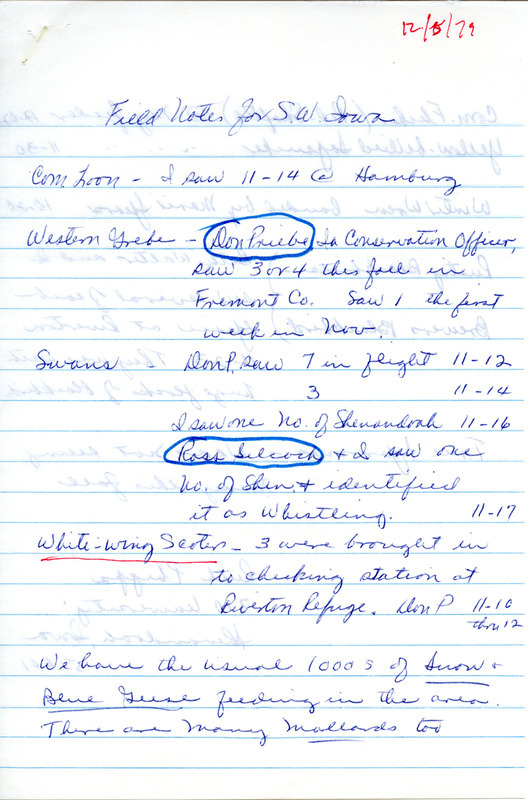 12/5/79
Field Notes for S.W. Iowa
Com Loon - I saw 11-14 @ Hamburg
Western Grebe - Don Priebe Ia Conservation Officer,
saw 3 or 4 this fall in
Fremont Co. Saw 1 the first
week in Nov.
Swans Don P. saw 7 in flight 11-12
3 11-14
I saw one No. of Shenandoah 11-16
Ross Silcock & I saw one
No. of Shen. & identified
it as Whistling. 11-17
White-wing Scoters - 3 were brought in
to checking station at
Riverton Refuge. Don P 11-10
thru 12
We have the usual 1000s of Snow &
Blue Geese feeding in the area.
There are many Mallards too